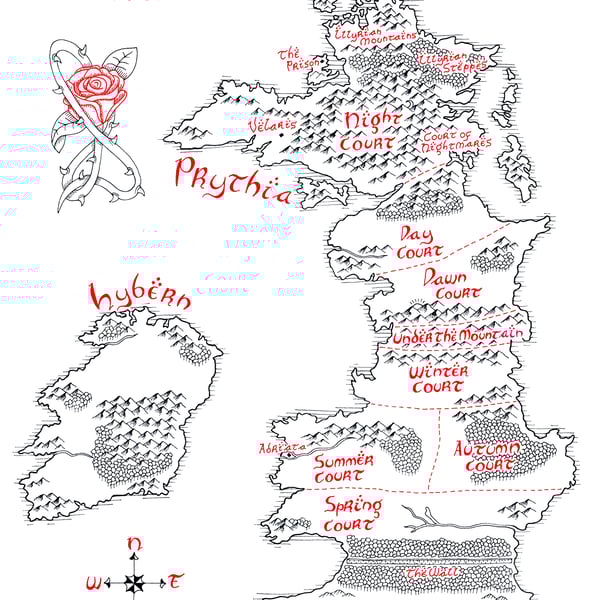 Illyrian
Mountains
The
Prison
Illyrian
Steppes
Velaris
Night
Court
Court of
Nightmares
Prythïa
Day
Court
Dawn
Court
hybërn
Under the Mountain
Winter
Court
Adriata
Summer
Court
Autumn
Court
Spring
Court
The Wall
N
W
E